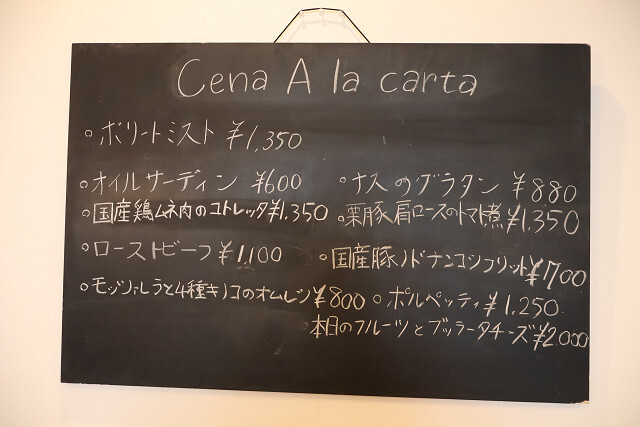 Cena A la carta
○ボリートミスト ¥1,350
○オイルサーディン ¥600
○国産鶏ムネ肉のコトレッタ¥1,350
○ローストビーフ ¥1,100
○モッツァレラと4種キノコのオムレツ¥800
○ナスのグラタン ¥880
○栗豚肩ロースのトマト煮¥1,350
○国産豚ノドナンコツフリット¥700
○ポルペッティ¥1,250
本日のフルーツとブッラータチーズ¥2,000